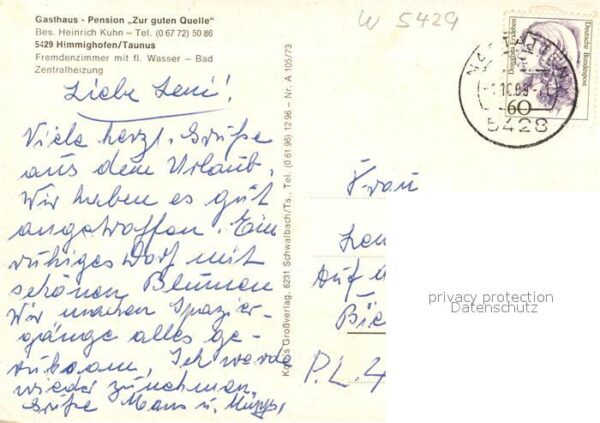 W 5429
Gasthaus - Pension „Zur guten Quelle"
Bes. Heinrich Kuhn – Tel. (0 67 72) 50 86
5429 Himmighofen/Taunus
Fremdenzimmer mit fl. Wasser – Bad
Zentralheizung
Liebe Leni!
Viele herzl. Grüße
aus dem Urlaub.
Wir haben es gut
angetroffen. Ein
ruhiges Dorf mit
schönen Blumen
Wir machen Spazier-
gänge alles ge-
ruhsam, Ich werde
wieder zunehmen.
Grüße Mama u.
Großverlag, 6231 Schwalbach/Ts., Tel. (0 61 96) 12 96 – Nr. A 105/73
Deutsche Bundespost
Dorothea Erxleben
60
5428
Frau
Len
Auf
Bie
P.L.4
privacy protection
Datenschutz